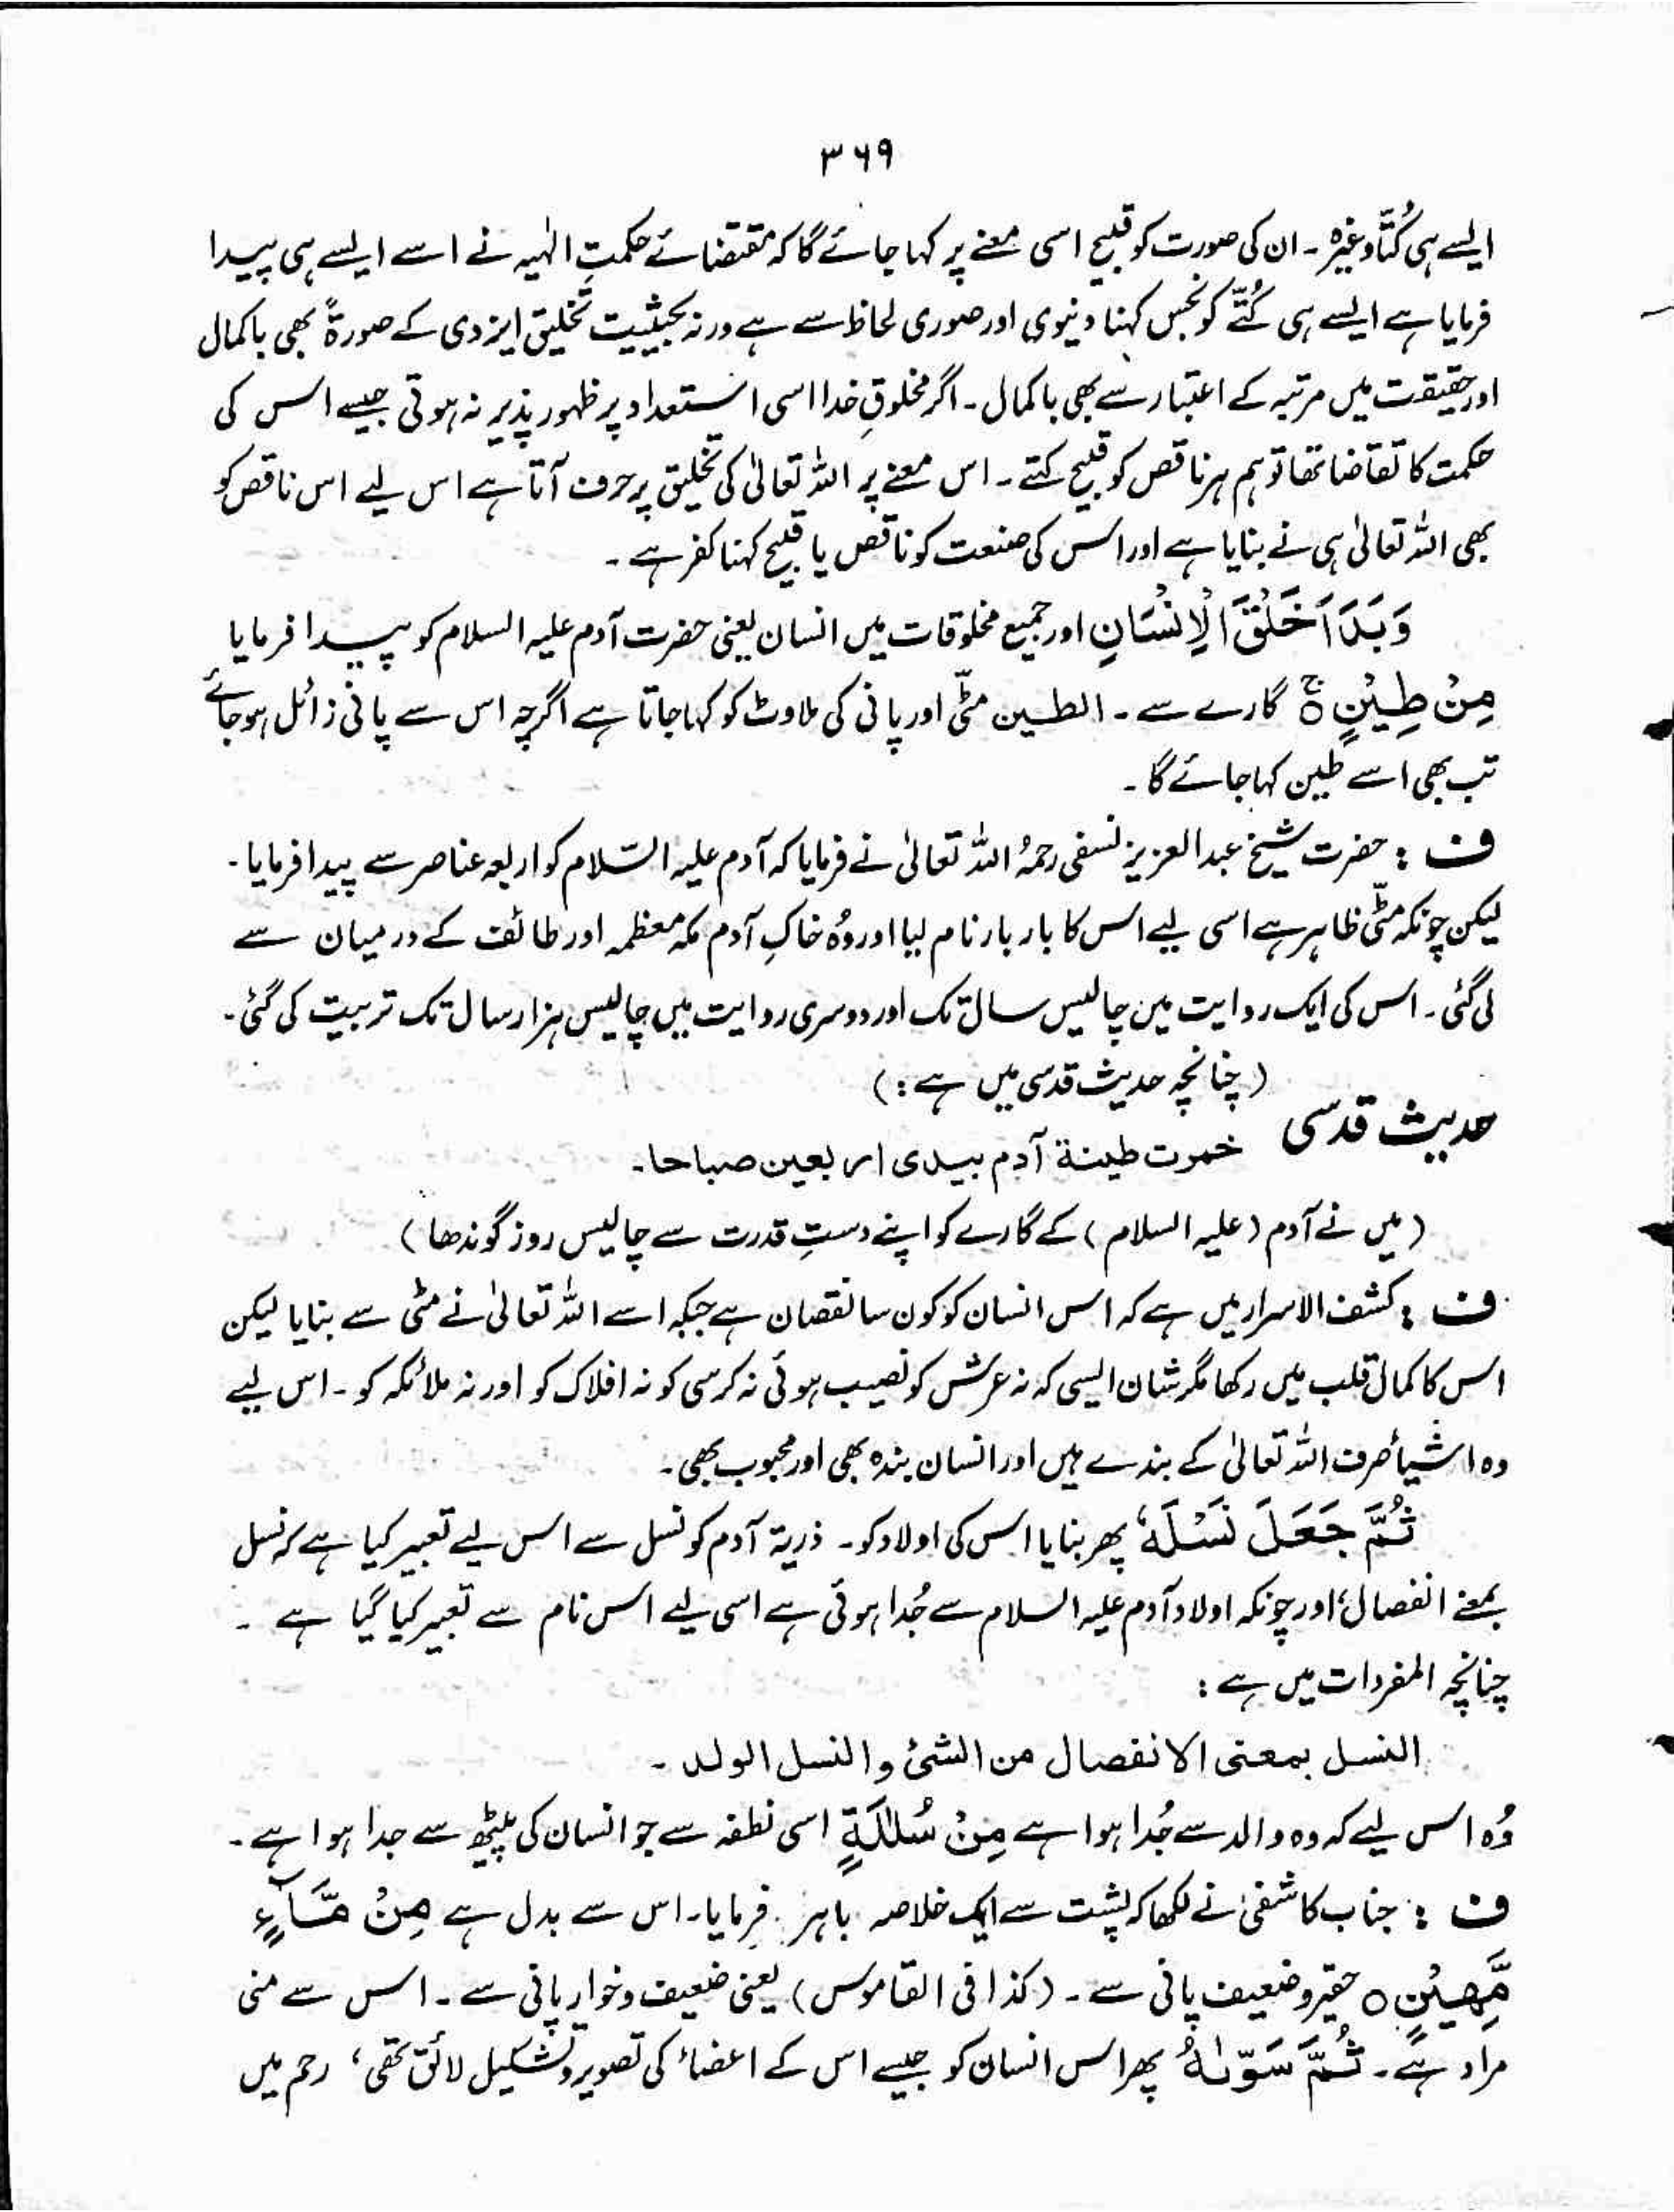 ۳۶۹
ایسے ہی کُتّا وغیرہ۔ ان کی صورت کو قبیح اسی معنے پر کہا جائے گا کہ مقتضائے حکمتِ الٰہیہ نے اسے ایسے ہی پیدا
فرمایا ہے ایسے ہی کُتّے کو نجس کہنا دنیوی اور صوری لحاظ سے ہے ورنہ بحیثیت تخلیق ایزدی کے صورۃً بھی باکمال
اور حقیقت میں مرتبہ کے اعتبار سے بھی باکمال۔ اگر مخلوقِ خدا اسی استعداد پر ظہور پذیر نہ ہوتی جیسے اس کی
حکمت کا تقاضا تھا تو ہم ہر ناقص کو قبیح کہتے۔ اس معنے پر اللہ تعالیٰ کی تخلیق پر حرف آتا ہے اس لیے اس ناقص کو
بھی اللہ تعالیٰ ہی نے بنایا ہے اور اس کی صنعت کو ناقص یا قبیح کہنا کفر ہے۔
وَبَدَاَ خَلْقَ الْاِنْسَانِ اور جمیع مخلوقات میں انسان یعنی حضرت آدم علیہ السلام کو پیدا فرمایا
مِنْ طِیْنٍ ۚ○ گارے سے۔ الطین مٹّی اور پانی کی ملاوٹ کو کہا جاتا ہے اگرچہ اس سے پانی زائل ہو جائے
تب بھی اسے طین کہا جائے گا۔
ف : حضرت شیخ عبد العزیز نسفی رحمہُ اللہ تعالیٰ نے فرمایا کہ آدم علیہ السّلام کو اربعہ عناصر سے پیدا فرمایا۔
لیکن چونکہ مٹّی ظاہر ہے اسی لیے اس کا بار بار نام لیا اور وُہ خاکِ آدم مکہ معظمہ اور طائف کے درمیان سے
لی گئی۔ اس کی ایک روایت میں چالیس سال تک اور دوسری روایت میں چالیس ہزار سال تک تربیت کی گئی۔
(چنانچہ حدیث قدسی میں ہے :)
حدیث قدسی خمرت طینة آدم بیدی اربعین صباحا۔
(میں نے آدم (علیہ السلام) کے گارے کو اپنے دستِ قدرت سے چالیس روز گوندھا)
ف : کشف الاسرار میں ہے کہ اس انسان کو کون سا نقصان ہے جبکہ اسے اللہ تعالیٰ نے مٹی سے بنایا لیکن
اس کا کمال قلب میں رکھا مگر شان ایسی کہ نہ عرش کو نصیب ہوئی نہ کرسی کو نہ افلاک کو اور نہ ملائکہ کو۔ اس لیے
وہ اشیأ صرف اللہ تعالیٰ کے بندے ہیں اور انسان بندہ بھی اور محبوب بھی۔
ثُمَّ جَعَلَ نَسْلَهٗ پھر بنایا اس کی اولاد کو۔ ذریۃ آدم کو نسل سے اس لیے تعبیر کیا ہے کہ نسل
بمعنے انفصال، اور چونکہ اولاد آدم علیہ السلام سے جُدا ہوئی ہے اسی لیے اس نام سے تعبیر کیا گیا ہے ۔
چنانچہ المفردات میں ہے :
النسل بمعنی الانفصال من الشئ والنسل الولد ۔
وُہ اس لیے کہ وہ والد سے جُدا ہوا ہے مِنْ سُلٰلَةٍ اسی نطفہ سے جو انسان کی پیٹھ سے جدا ہوا ہے۔
ف : جناب کاشفی نے لکھا کہ پشت سے ایک خلاصہ باہر فرمایا۔ اس سے بدل ہے مِنْ مَّآءٍ
مَّهِیْنٍ ○ حقیر و ضعیف پانی سے۔ (کذا فی القاموس) یعنی ضعیف و خوار پانی سے۔ اس سے منی
مراد ہے۔ ثُمَّ سَوّٰىهُ پھر اس انسان کو جیسے اس کے اعضاء کی تصویر و تشکیل لائق تھی، رحم میں